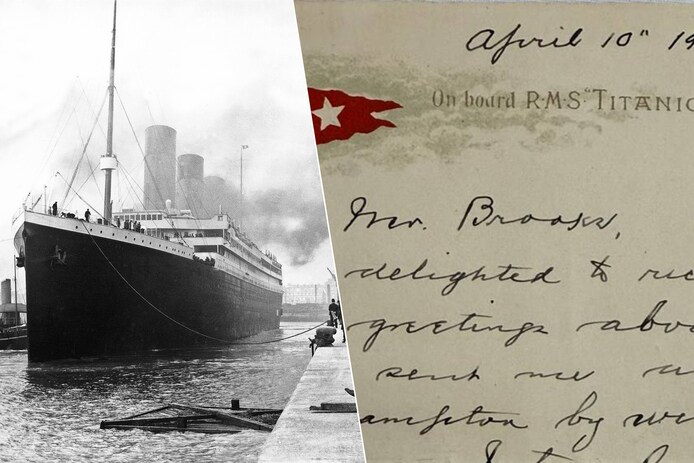 April 10" 19
On board R·M·S· "TITANIC
Mr. Brooks,
delighted to rec
greetings abo
sent me
ampton by